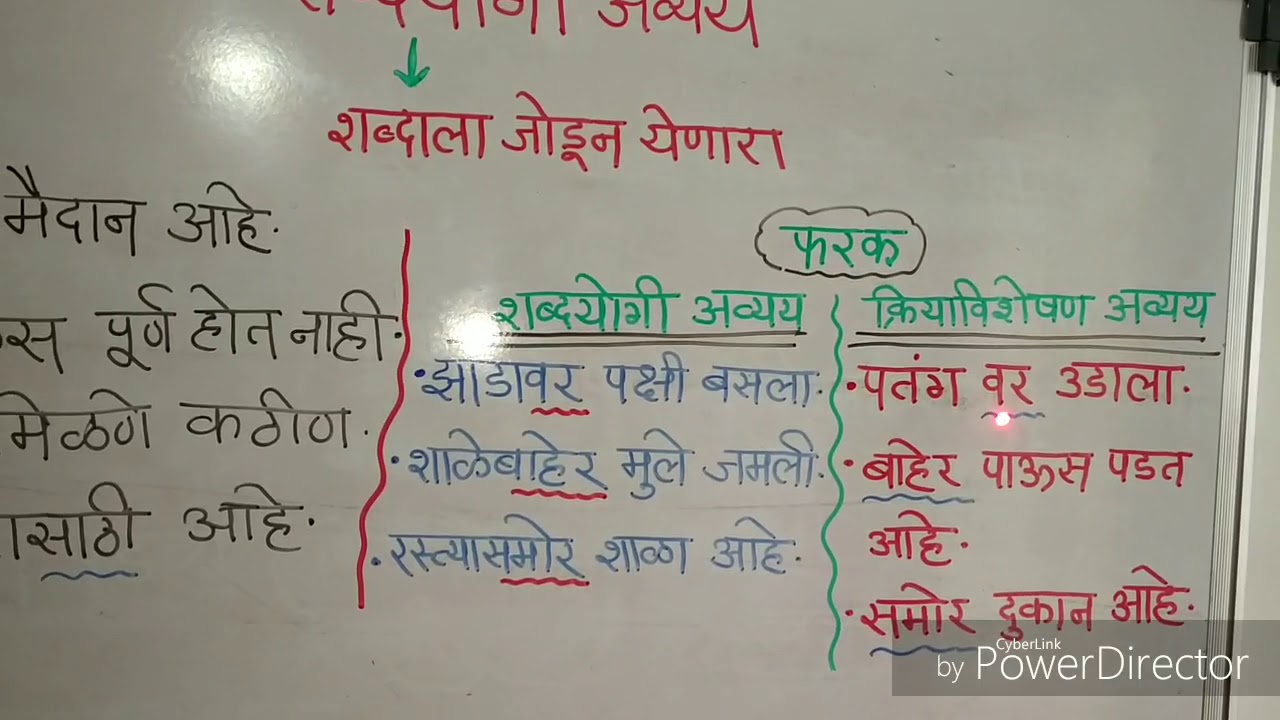 अव्यय
शब्दाला जोडून येणारा
मैदान आहे.
पूर्ण होत नाही.
मिळणे कठीण.
साठी आहे.
फरक
शब्दयोगी अव्यय
• झाडावर पक्षी बसला.
• शाळेबाहेर मुले जमली.
• रस्त्यासमोर शाळा आहे.
क्रियाविशेषण अव्यय
• पतंग वर उडाला.
• बाहेर पाऊस पडत
आहे.
• समोर दुकान आहे.
CyberLink
by PowerDirector